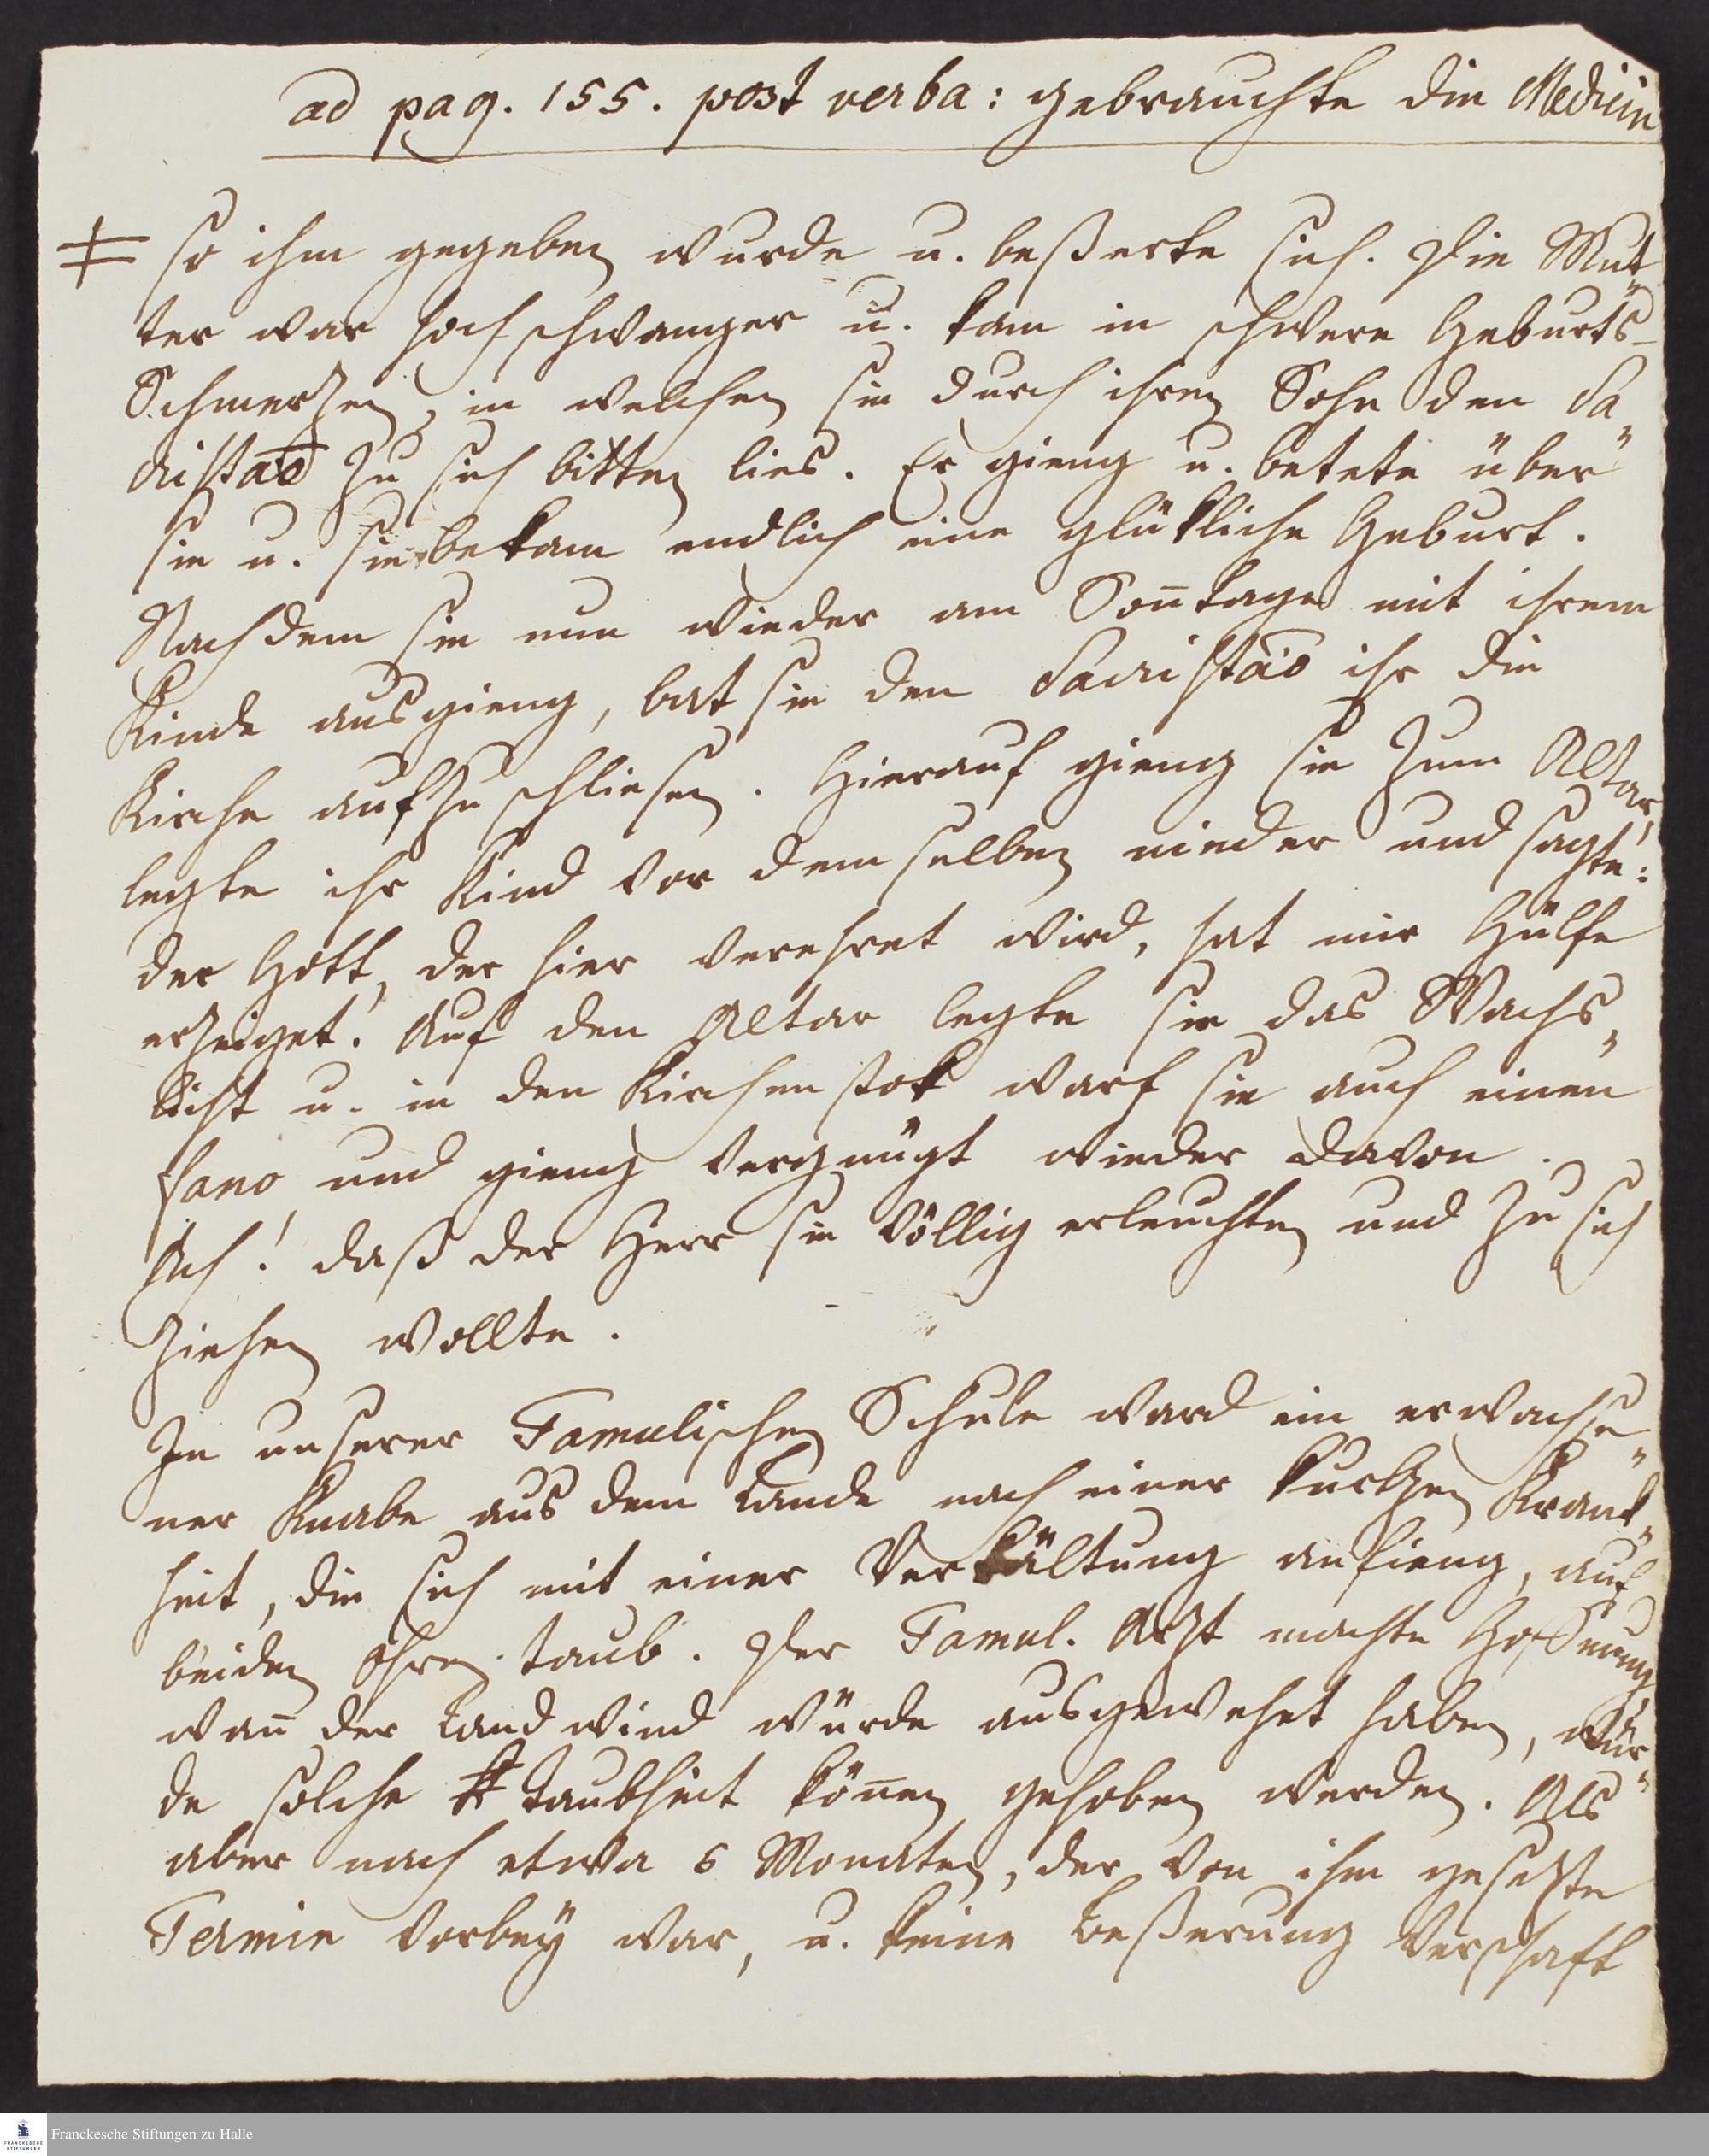 ad pag. 155. post verba: gebrauchte die Medicin
so ihm gegeben wurde u. beßerte sich. Die Mut„
ter war hochschwanger u. kam in schwere Geburts-
Schmerzen, in welchen sie durch ihren Sohn den Sa„
cristaõ zu sich bitten lies. Er gieng u. betete über
sie u. sie bekam endlich eine glükliche Geburt.
Nachdem sie nun wieder am Son̄tage mit ihrem
Kinde ausgieng, bat sie den Sacristaõ ihr die
Kirche aufzuschliesen. Hierauf gieng sie zum Altar,
legte ihr Kind vor demselben nieder und sagte:
der Gott, der hier verehret wird, hat mir Hülfe
erzeiget! Auf den Altar legte sie das Wachs„
licht u. in den Kirchenstok warf sie auch einen
fano, und gieng vergnügt wieder davon.
Ach! daß der Herr sie völlig erleuchten und zu sich
ziehen wollte.
In unserer Tamulischen Schule ward ein erwachse„
ner Knabe aus dem Lande nach einer kurtzen Krank„
heit, die sich mit einer Verkältung anfieng, auf
beiden Ohren taub. Der Tamul. Arzt machte Hoffnung
wan̄ der Landwind würde ausgewehet haben, wür„
de solche Taubheit kön̄en gehoben werden. Als
aber nach etwa 6 Monaten, der von ihm gesetzte
Termin vorbey war, u. keine Beßerung verschaft
Franckesche Stiftungen zu Halle